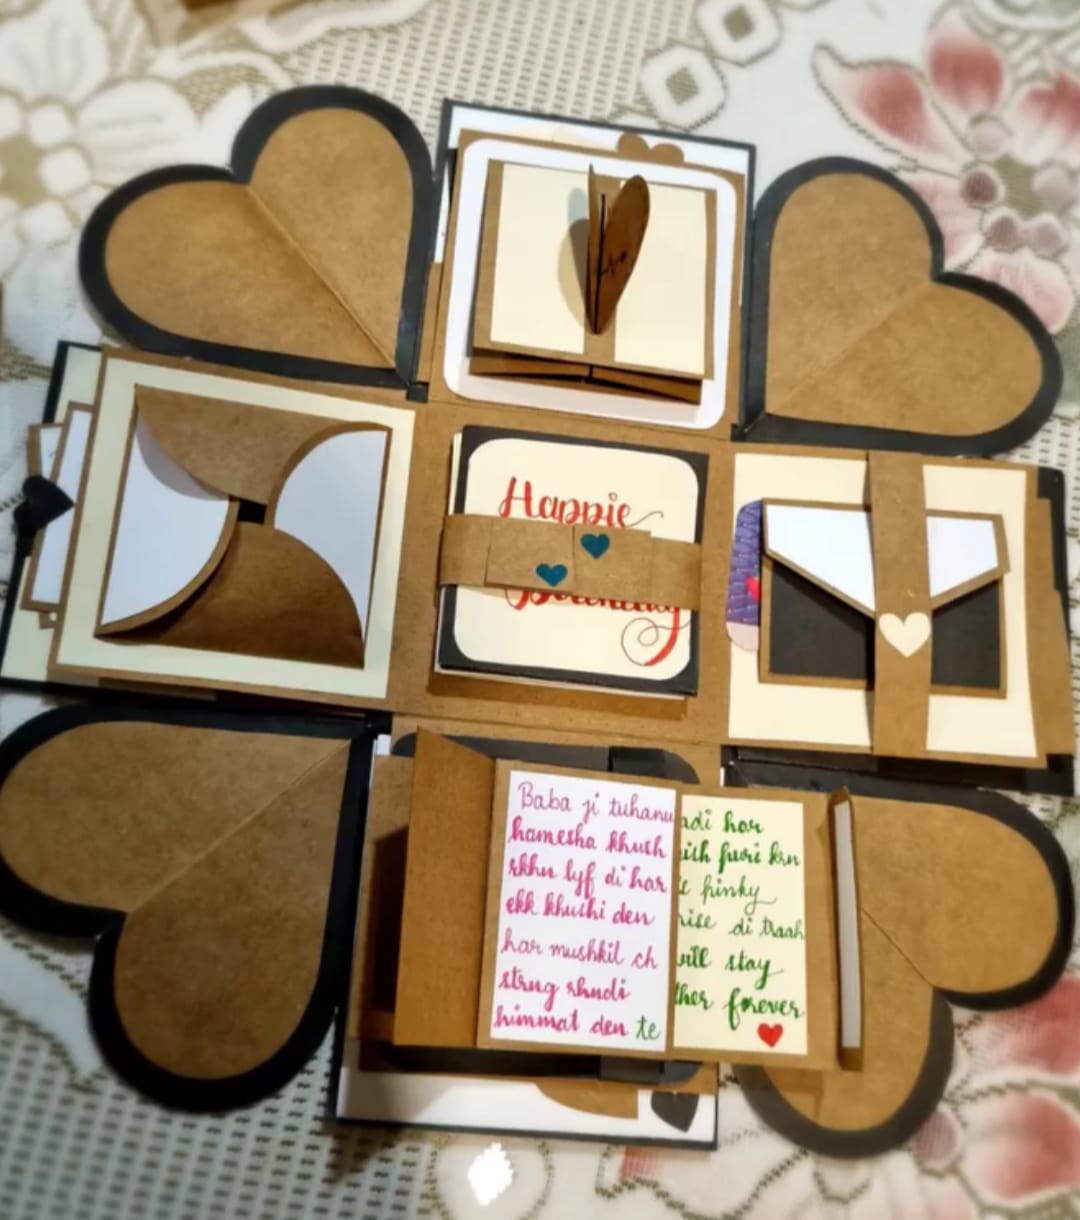 Happie
Birthday
Baba ji tuhanu
hamesha khush
rkhn lyf di har
ekk khushi den
har mushkil ch
strng rhndi
himmat den te
har
furi krn
pinky
di traah
stay
forever